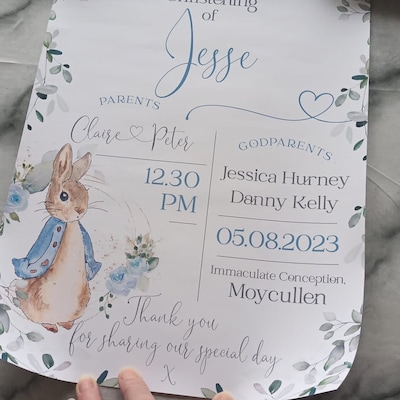 Christening
of
Jesse
PARENTS
Claire Peter
12.30
PM
GODPARENTS
Jessica Hurney
Danny Kelly
05.08.2023
Immaculate Conception,
Moycullen
Thank you
for sharing our special day
X